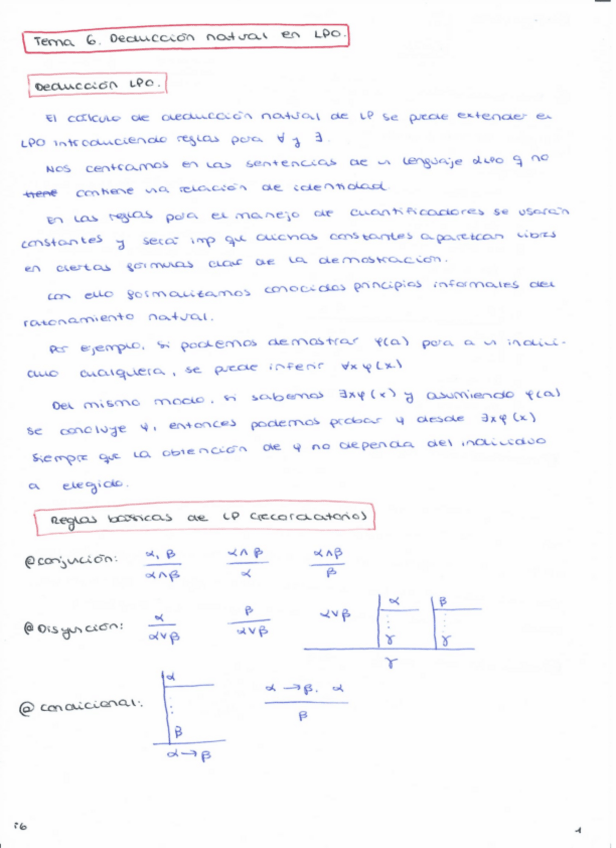 Tema 6. Deducción natural en LPO.
Deducción LPO.
El cálculo de deducción natural de LP se puede extender en
LPO introduciendo reglas para ∀ y ∃.
Nos centramos en las sentencias de un lenguaje de LPO q no
tiene contiene una relación de identidad.
En las reglas para el manejo de cuantificadores se usarán
constantes y será imp que dichas constantes aparezcan libres
en ciertas fórmulas clar de la demostración.
Con ello formalizamos conocidos principios informales del
razonamiento natural.
Por ejemplo, si podemos demostrar φ(a) para a un indivi-
duo cualquiera, se puede inferir ∀xφ(x)
Del mismo modo, si sabemos ∃xφ(x) y asumiendo φ(a)
se concluye ψ, entonces podemos probar ψ desde ∃xφ(x)
siempre que la obtención de ψ no dependa del individuo
a elegido.
Reglas básicas de LP (recordatorio)
@conjunción: α, β α∧β α∧β
α∧β α β
@Disyunción: α β α∨β α β
α∨β α∨β ⋮ ⋮
γ γ
γ
@condicional: α α→β, α
⋮ β
β
α→β
i6 1